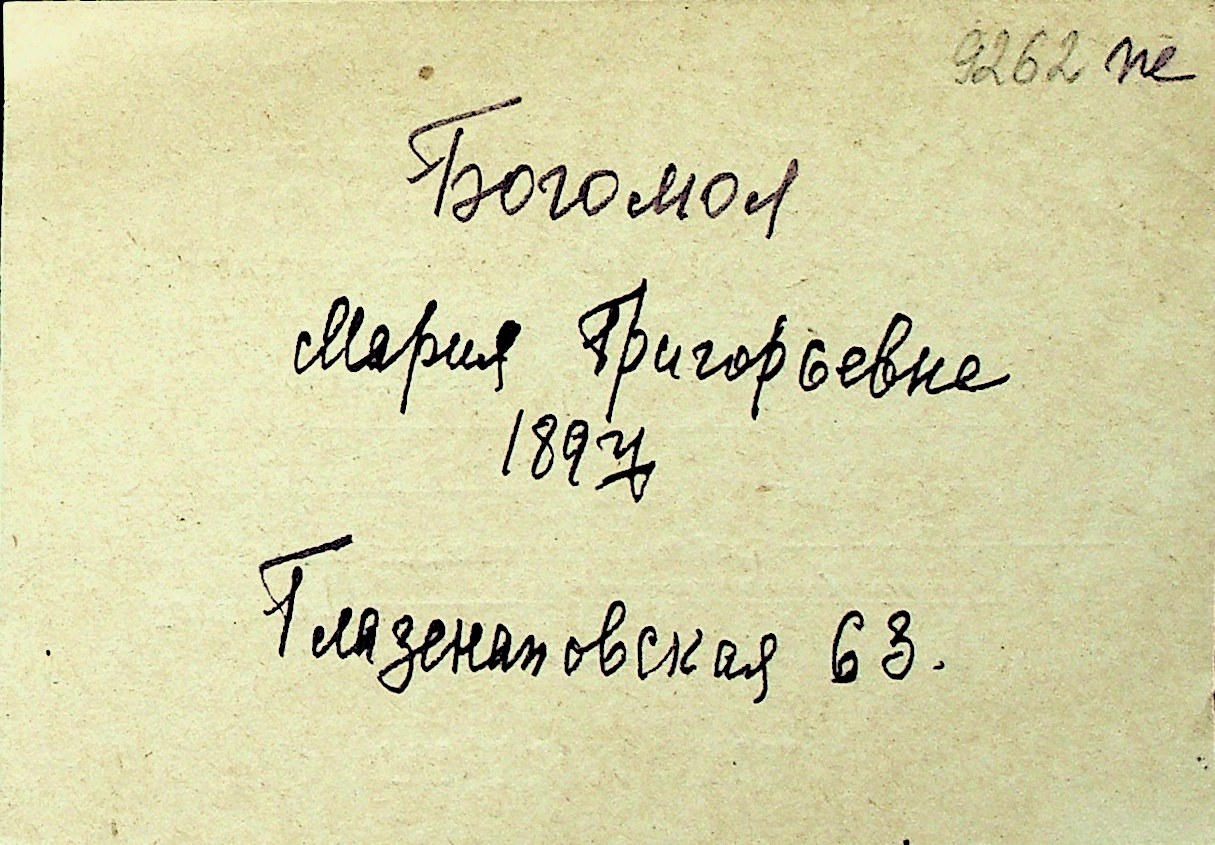 9262 пе
Богомол
Мария Григорьевна
1897
Глазенаповская 63.